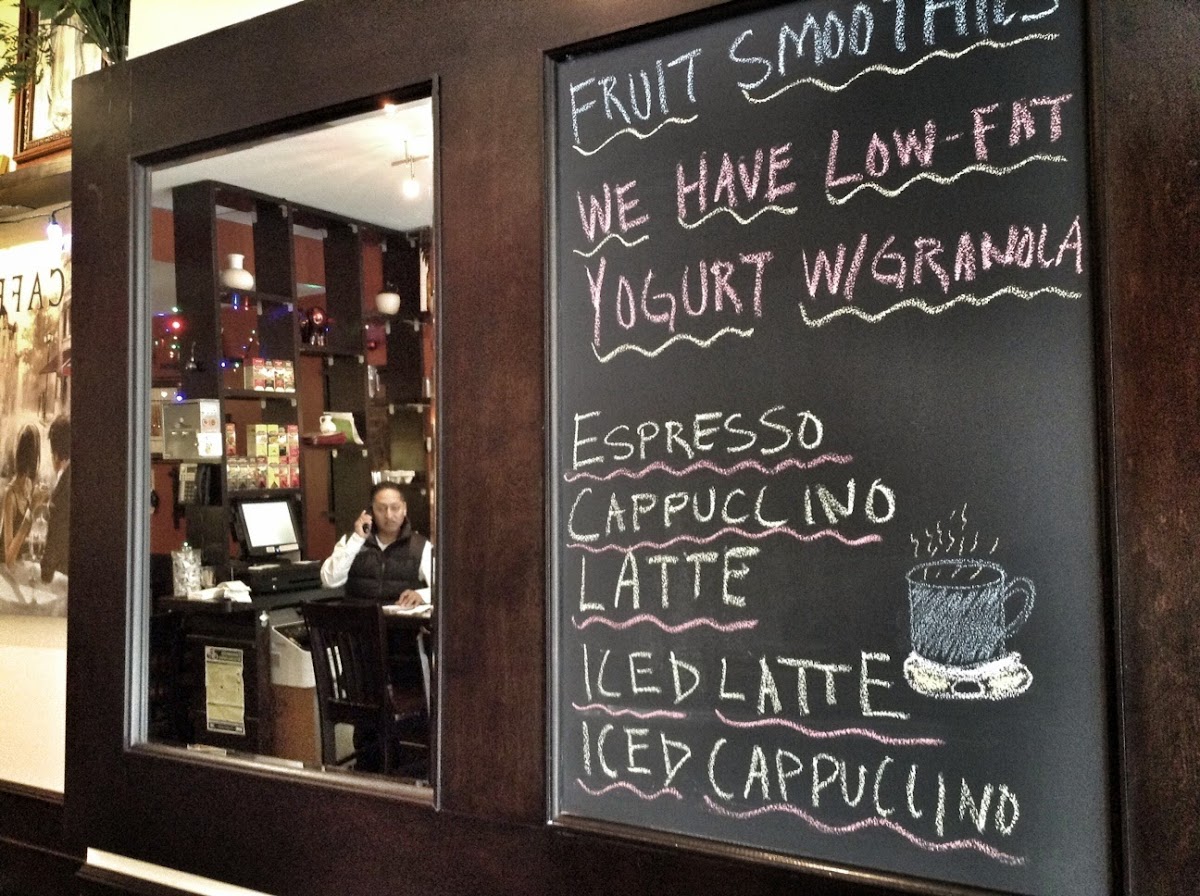 FRUIT SMOOTHIES
WE HAVE LOW-FAT
YOGURT W/GRANOLA
ESPRESSO
CAPPUCCINO
LATTE
ICED LATTE
ICED CAPPUCCINO